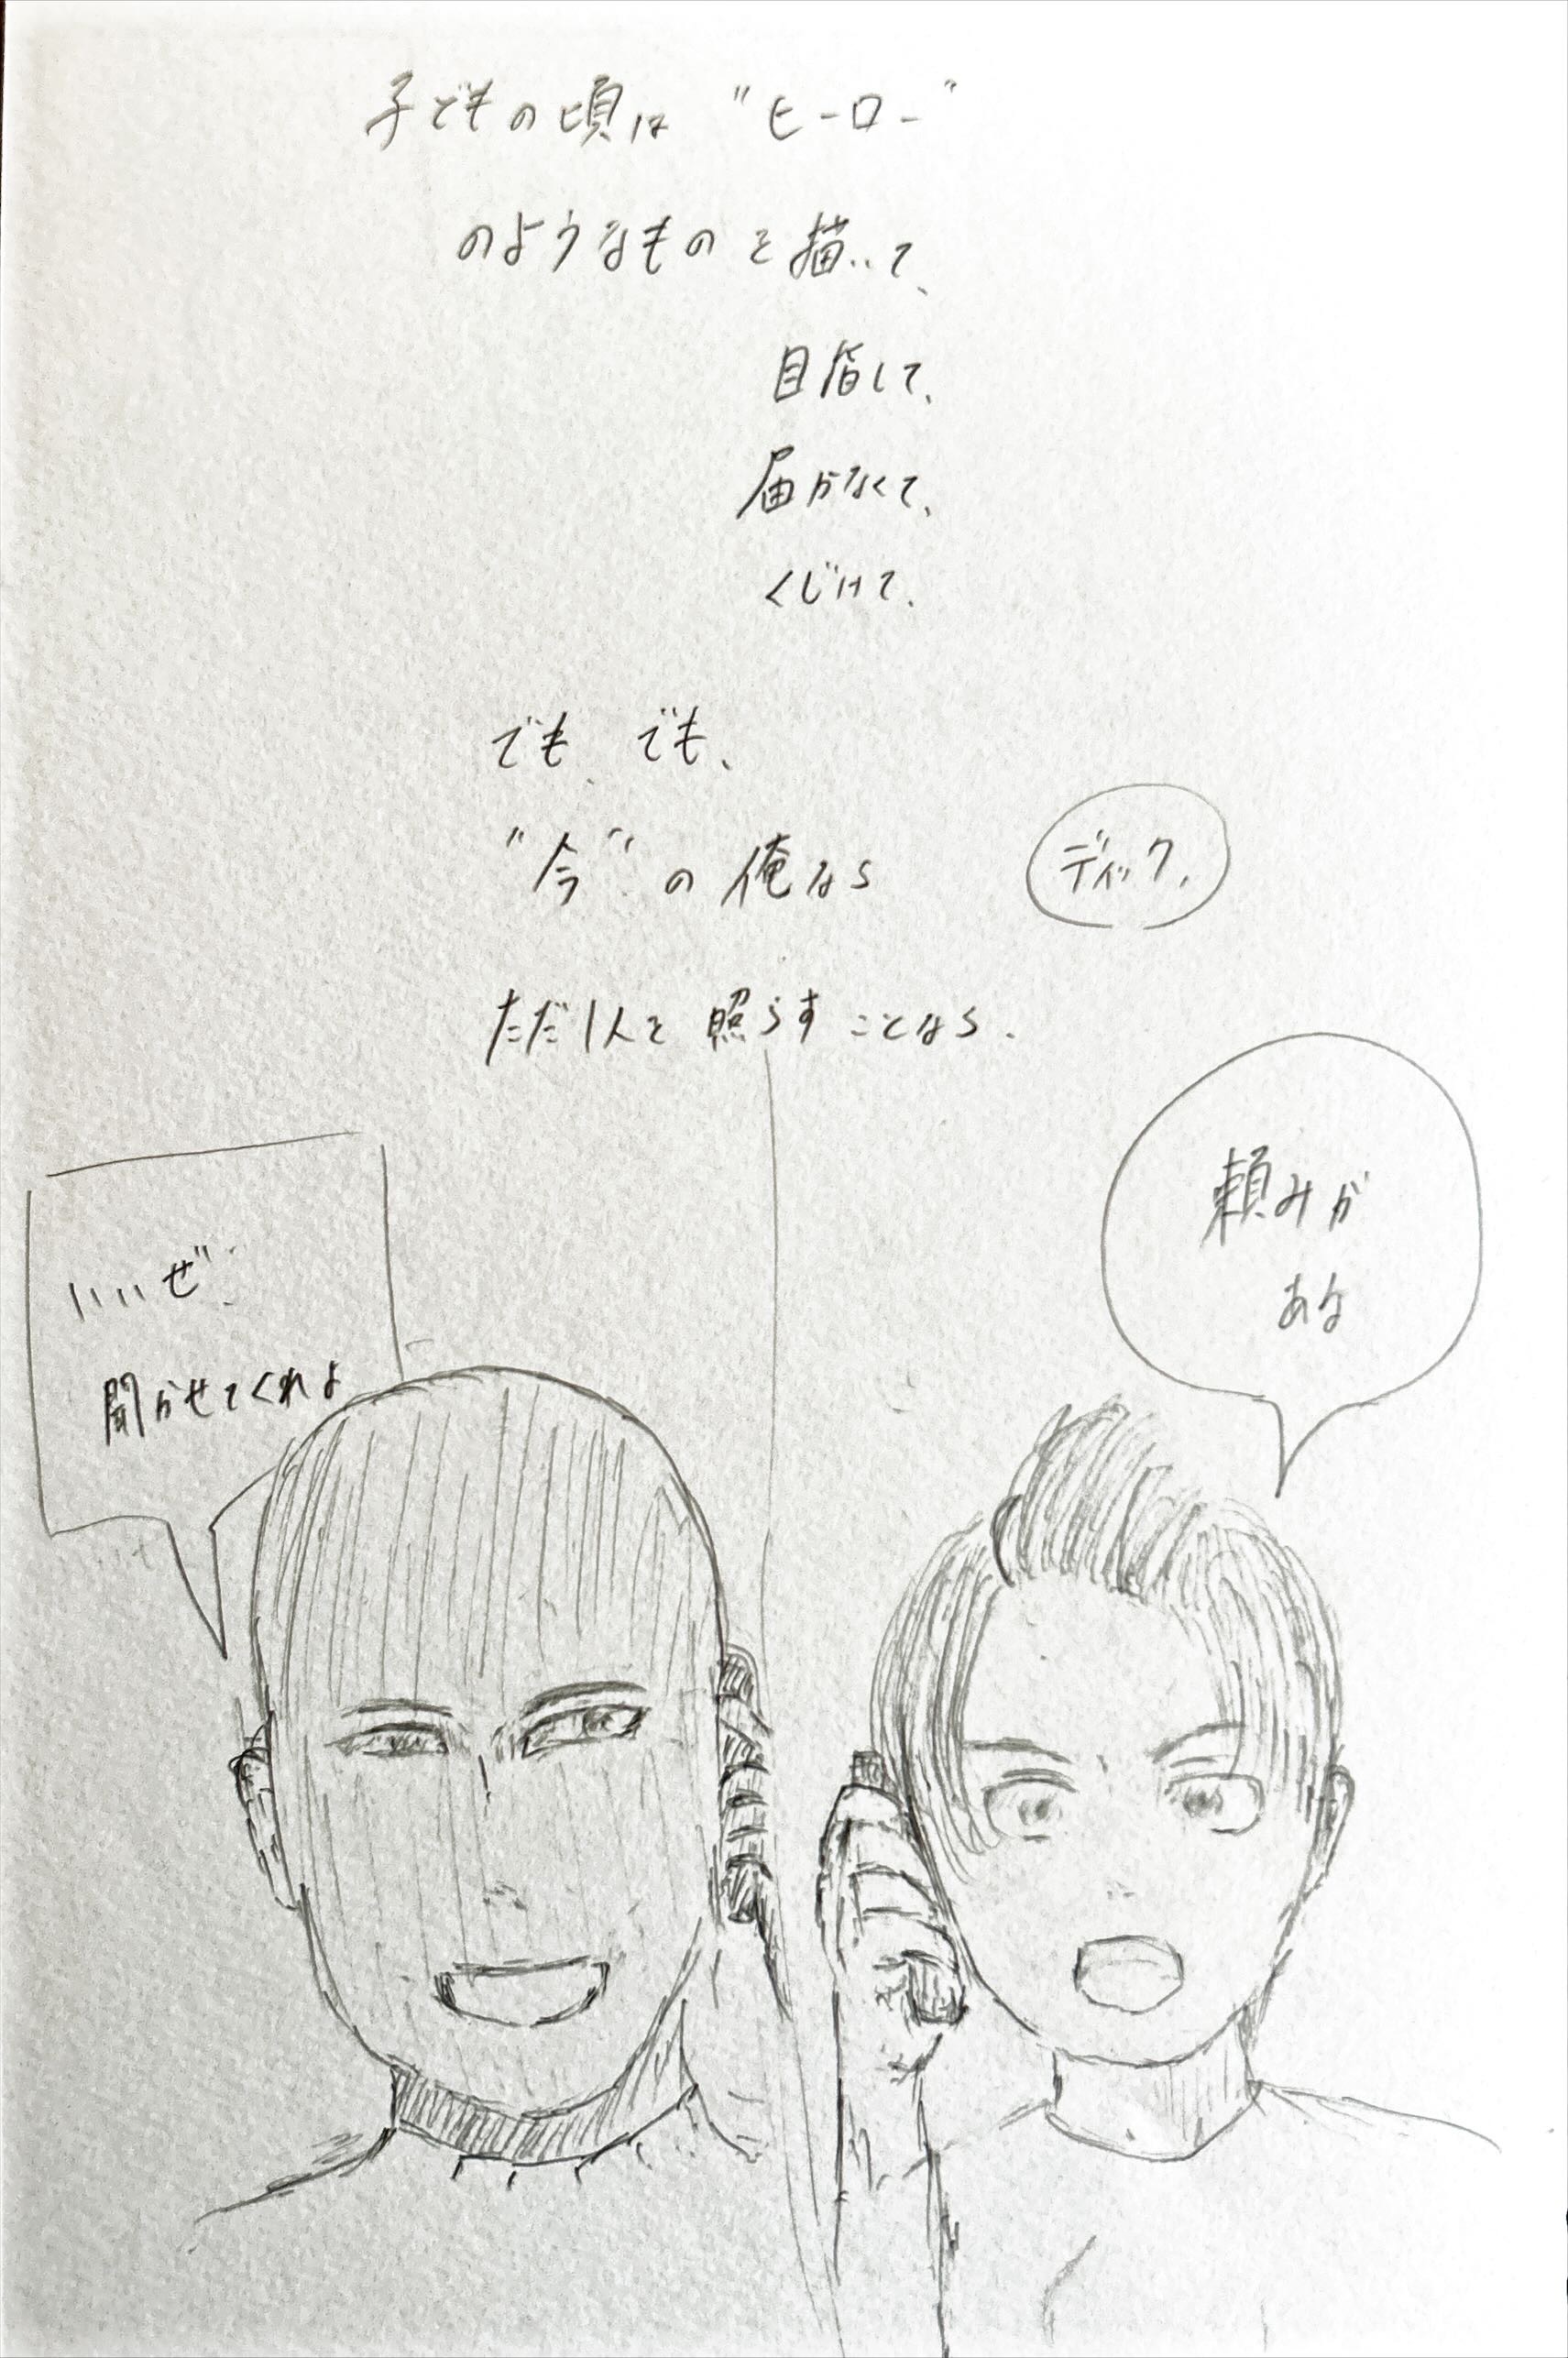 子どもの頃は "ヒーロー"
のようなものを描いて、
目指して、
届かなくて、
くじけて、
でも、でも、
"今"の俺なら
ただ1人を照らすことなら、
ディック、
頼みが
ある
いいぜ、
聞かせてくれよ